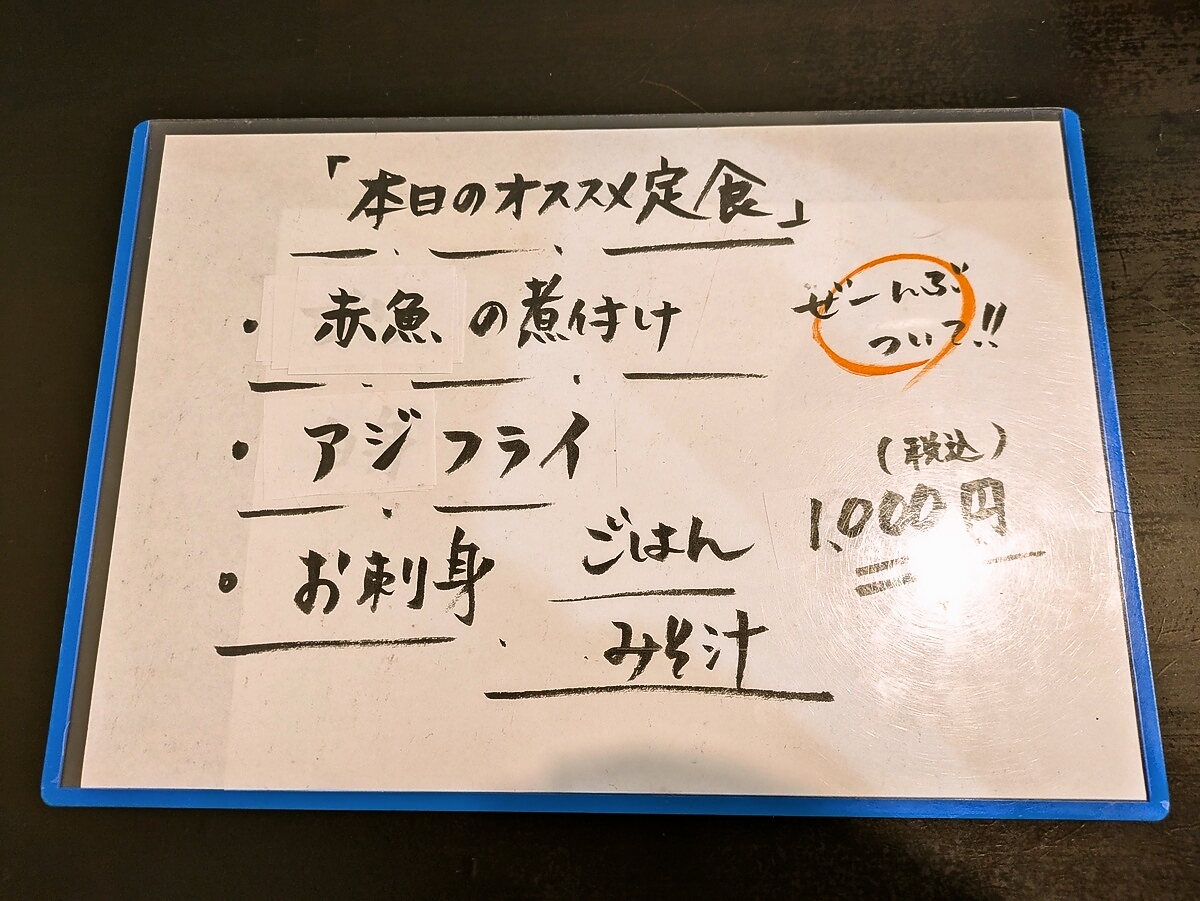 「本日のオススメ定食」
・赤魚の煮付け
・アジフライ
・お刺身
ごはん
みそ汁
ぜーんぶ
ついて!!
(税込)
1,000円